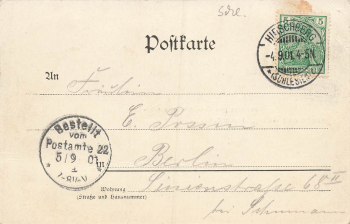 Postkarte
5
HIRSCHBERG
-4.9.01.4-5N.
(SCHLESIEN)
An
Fräulein
E. Prossin
Bestellt
vom
Postamte 22
5/9 01
in
Berlin
Wohnung
(Straße und Hausnummer)
Linienstraße 68 II
bei Schumann